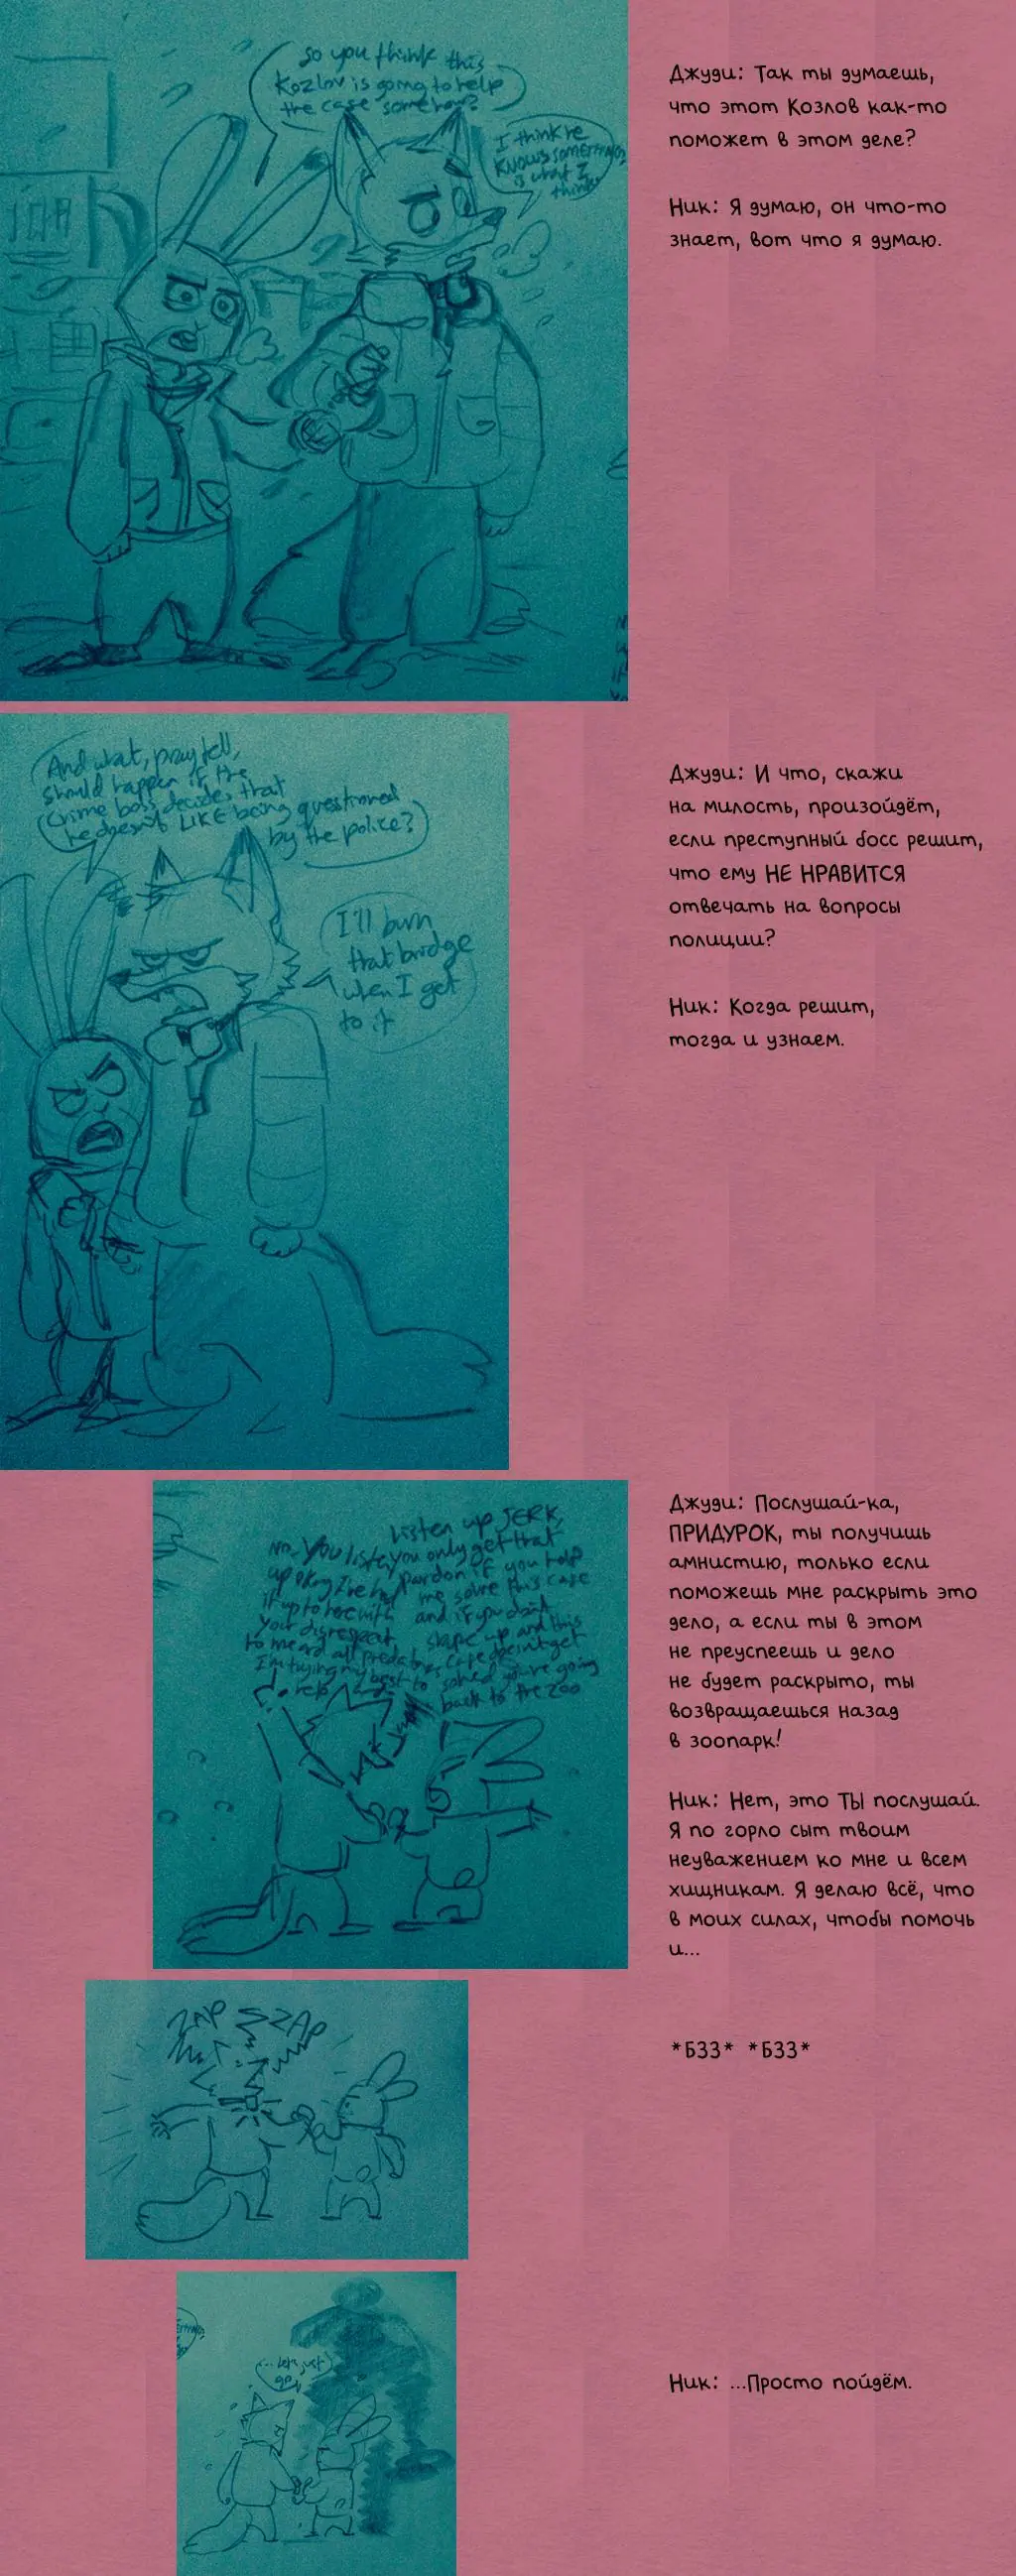 so you think this
Kozlov is going to help
the case somehow?
I think he
KNOWS SOMETHING
is what I
think
Джуди: Так ты думаешь,
что этот Козлов как-то
поможет в этом деле?
Ник: Я думаю, он что-то
знает, вот что я думаю.
And what, pray tell,
should happen if the
crime boss decides that
he doesn't LIKE being questioned
by the police?
I'll burn
that bridge
when I get
to it
Джуди: И что, скажи
на милость, произойдёт,
если преступный босс решит,
что ему НЕ НРАВИТСЯ
отвечать на вопросы
полиции?
Ник: Когда решит,
тогда и узнаем.
Listen up JERK,
you only get that
pardon if you help
me solve this case
and if you don't
shape up and this
case doesn't get
solved you're going
back to the zoo
No You listen
up okay I've had
it up to here with
your disrespect
to me and all predators
I'm trying my best to
help
Джуди: Послушай-ка,
ПРИДУРОК, ты получишь
амнистию, только если
поможешь мне раскрыть это
дело, а если ты в этом
не преуспеешь и дело
не будет раскрыто, ты
возвращаешься назад
в зоопарк!
Ник: Нет, это ТЫ послушай.
Я по горло сыт твоим
неуважением ко мне и всем
хищникам. Я делаю всё, что
в моих силах, чтобы помочь
и...
ZAP ZAP
*БЗЗ* *БЗЗ*
... let's just
go
Ник: ...Просто пойдём.